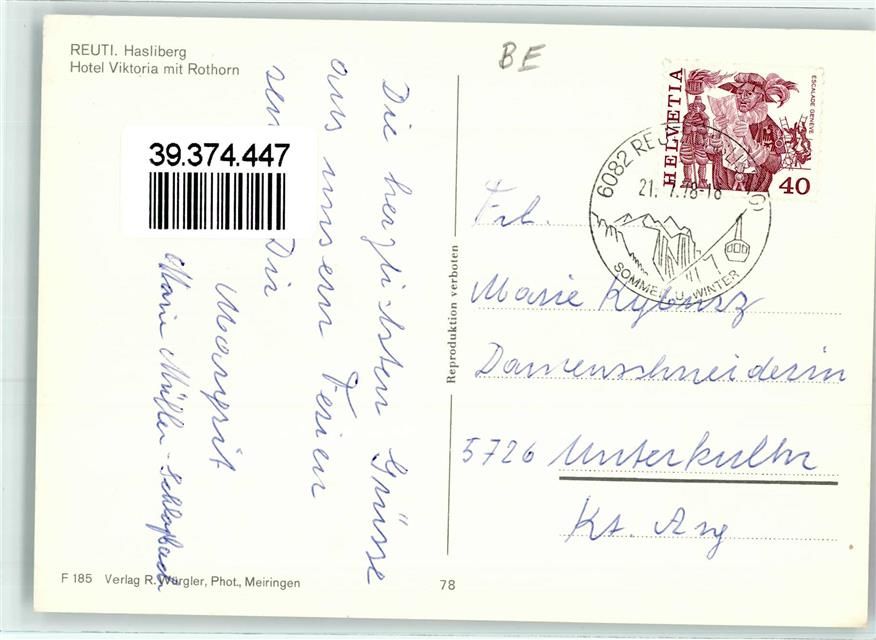 REUTI. Hasliberg
Hotel Viktoria mit Rothorn
BE
HELVETIA
ESCALADE GENÈVE
40
6082 REUTI
21. 7.78-18
SOMMER U. WINTER
39.374.447
Die herzlichsten Grüsse
aus unsern Ferien
Dir
Margrit
Marie Müller-
Reproduktion verboten
Frl.
Marie Kyburz
Damenschneiderin
5726 Unterkulm
Kt. Arg
F 185 Verlag R. Würgler, Phot., Meiringen
78